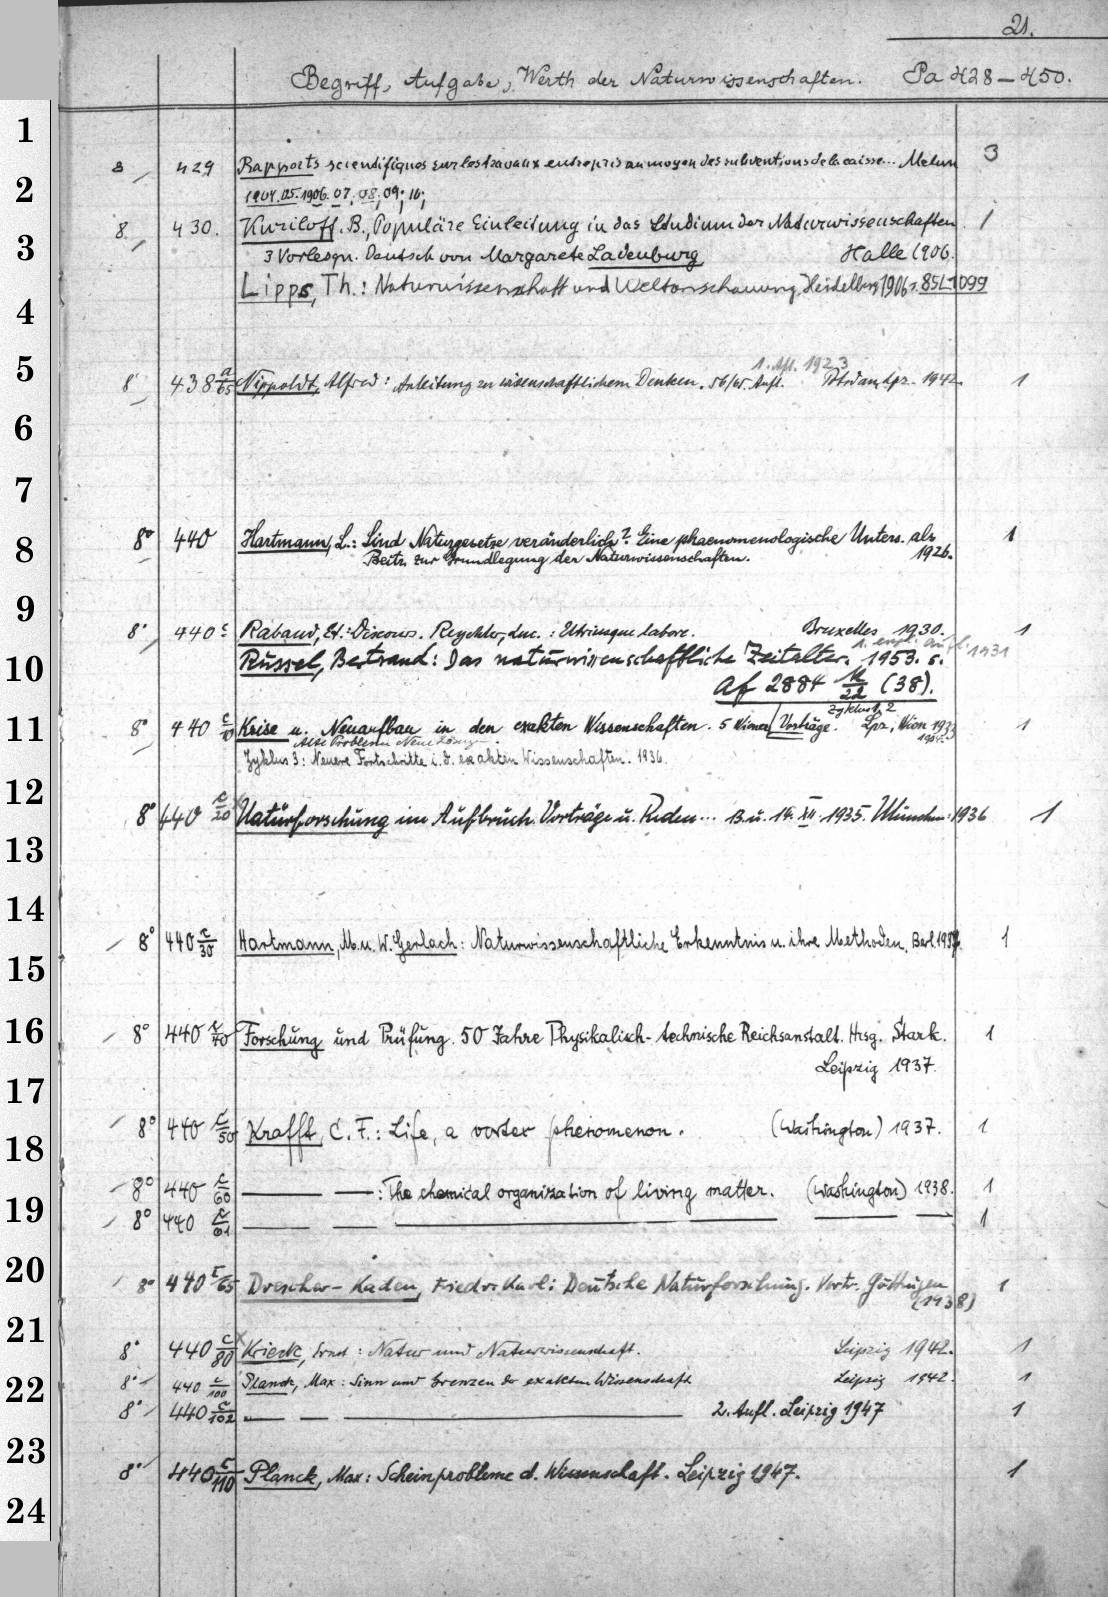 21.
Begriff, Aufgabe, Werth der Naturwissenschaften. Pa 428–450.
8 429 Rapports scientifiques sur les travaux entrepris au moyen des subventions de la caisse... Melun 3
1904.05.1906.07.08,09;10;
8. 430. Kuriloff, B., Populäre Einleitung in das Studium der Naturwissenschaften 1
3 Vorlesgn. Deutsch von Margarete Ladenburg Halle 1906.
Lipps, Th.: Naturwissenschaft und Weltanschauung. Heidelberg 1906 s.
1923
8° 438 a/65 Nippoldt, Alfred: Anleitung zu wissenschaftlichem Denken. Aufl. Potsdam, Lpz. 1942. 1
8° 440 Hartmann, L.: Sind Naturgesetze veränderlich? Eine phaenomenologische Unters. als 1
Beitr. zur Grundlegung der Naturwissenschaften. 1926.
8° 440 c Rabaud, Et.: Discours. Reychler, Luc.: Utriusque labore. Bruxelles 1930. 1
1931
Russel, Bertrand: Das naturwissenschaftliche Zeitalter. 1953. s.
Af 2884 (38).
Zyklus 2
8° 440 c/10 Krise u. Neuaufbau in den exakten Wissenschaften. 5 Wiener Vorträge. Lpz., Wien 1933 1
Alte Probleme Neue Lösungen.
Zyklus 3: Neuere Fortschritte i. d. exakten Wissenschaften. 1936.
8° 440 c/20 Naturforschung im Aufbruch. Vorträge u. Reden... 13. u. 14. XII. 1935. München: 1936 1
8° 440 c/30 Hartmann, M. u. W. Gerlach: Naturwissenschaftliche Erkenntnis u. ihre Methoden. Berl. 1937. 1
8° 440 c/40 Forschung und Prüfung. 50 Jahre Physikalisch-technische Reichsanstalt. Hrsg. Stark. 1
Leipzig 1937.
8° 440 c/50 Krafft, C. F.: Life, a vortex phenomenon. (Washington) 1937. 1
8° 440 c/60 —— ——: The chemical organization of living matter. (Washington) 1938. 1
8° 440 c/61 —— —— —— —— —— 1
8° 440 c/65 Drescher-Kaden, Friedr. Karl: Deutsche Naturforschung. Vortr. Göttingen 1
(1938)
8° 440 c/80 Krieck, Ernst: Natur und Naturwissenschaft. Leipzig 1942. 1
8° 440 c/100 Planck, Max: Sinn und Grenzen der exakten Wissenschaft. Leipzig 1942. 1
8° 440 c/102 —— — —— 2. Aufl. Leipzig 1947 1
8° 440 c/110 Planck, Max: Scheinprobleme d. Wissenschaft. Leipzig 1947. 1
1
2
3
4
5
6
7
8
9
10
11
12
13
14
15
16
17
18
19
20
21
22
23
24